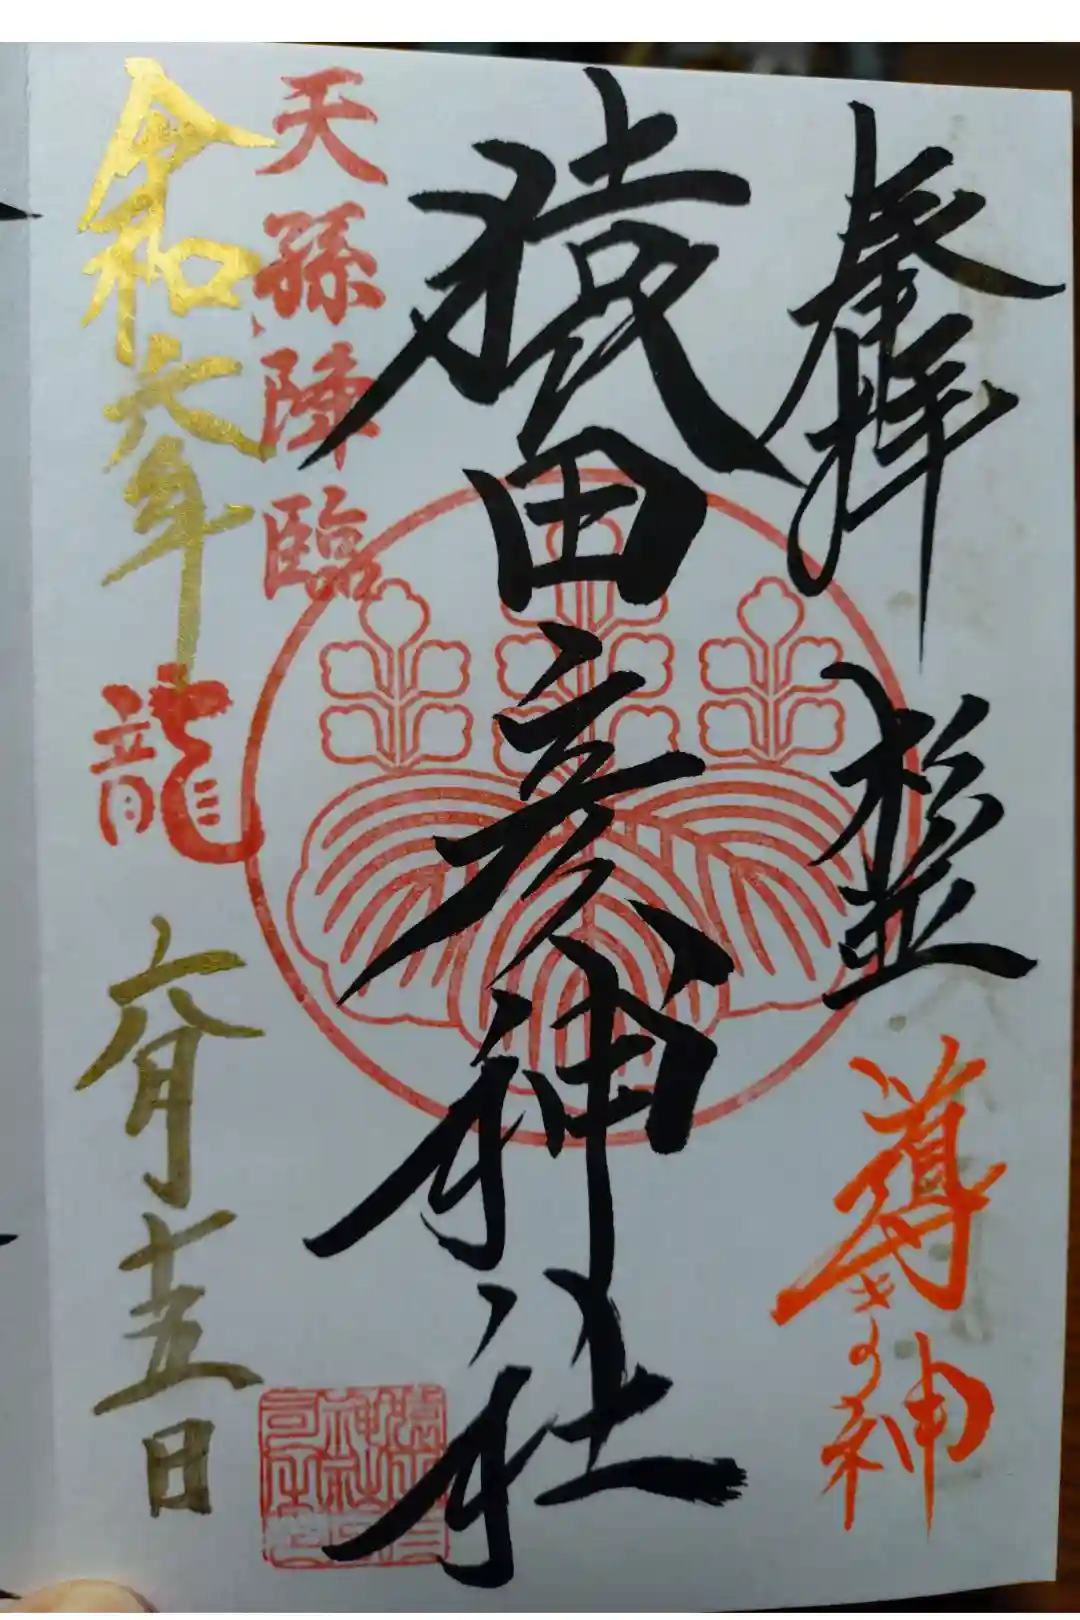 奉拝 杉並 導きの神
猿田彦神社
天孫降臨
令和六年 龍 六月十五日